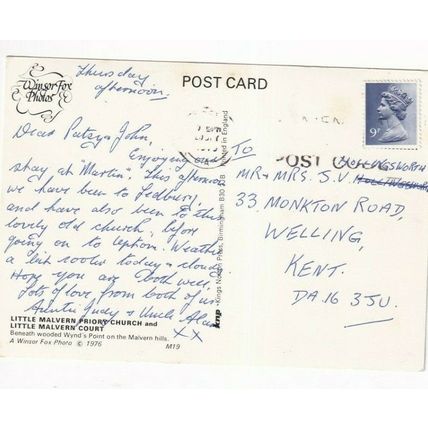 Winsor Fox
Photos
Thursday
afternoon.
POST CARD
9P
Dear Patsy & John,
Enjoying our
stay at "Martin". This afternoon
we have been to Ledbury,
and have also been to the
lovely old church, before
going on to Upton. Weather
a bit cooler today & cloudy
Hope you are both well,
Lots of love from both of us
Auntie Judy & Uncle Alan
xx
TO
POST CODE
HOLLINGSWORTH
MR & MRS. J. V.
33 MONKTON ROAD,
WELLING,
KENT.
DA16 3JU.
Printed in England
knp Kings Norton Press, Birmingham B30 2JB
LITTLE MALVERN PRIORY CHURCH and
LITTLE MALVERN COURT
Beneath wooded Wynd's Point on the Malvern hills.
A Winsor Fox Photo © 1976 M19